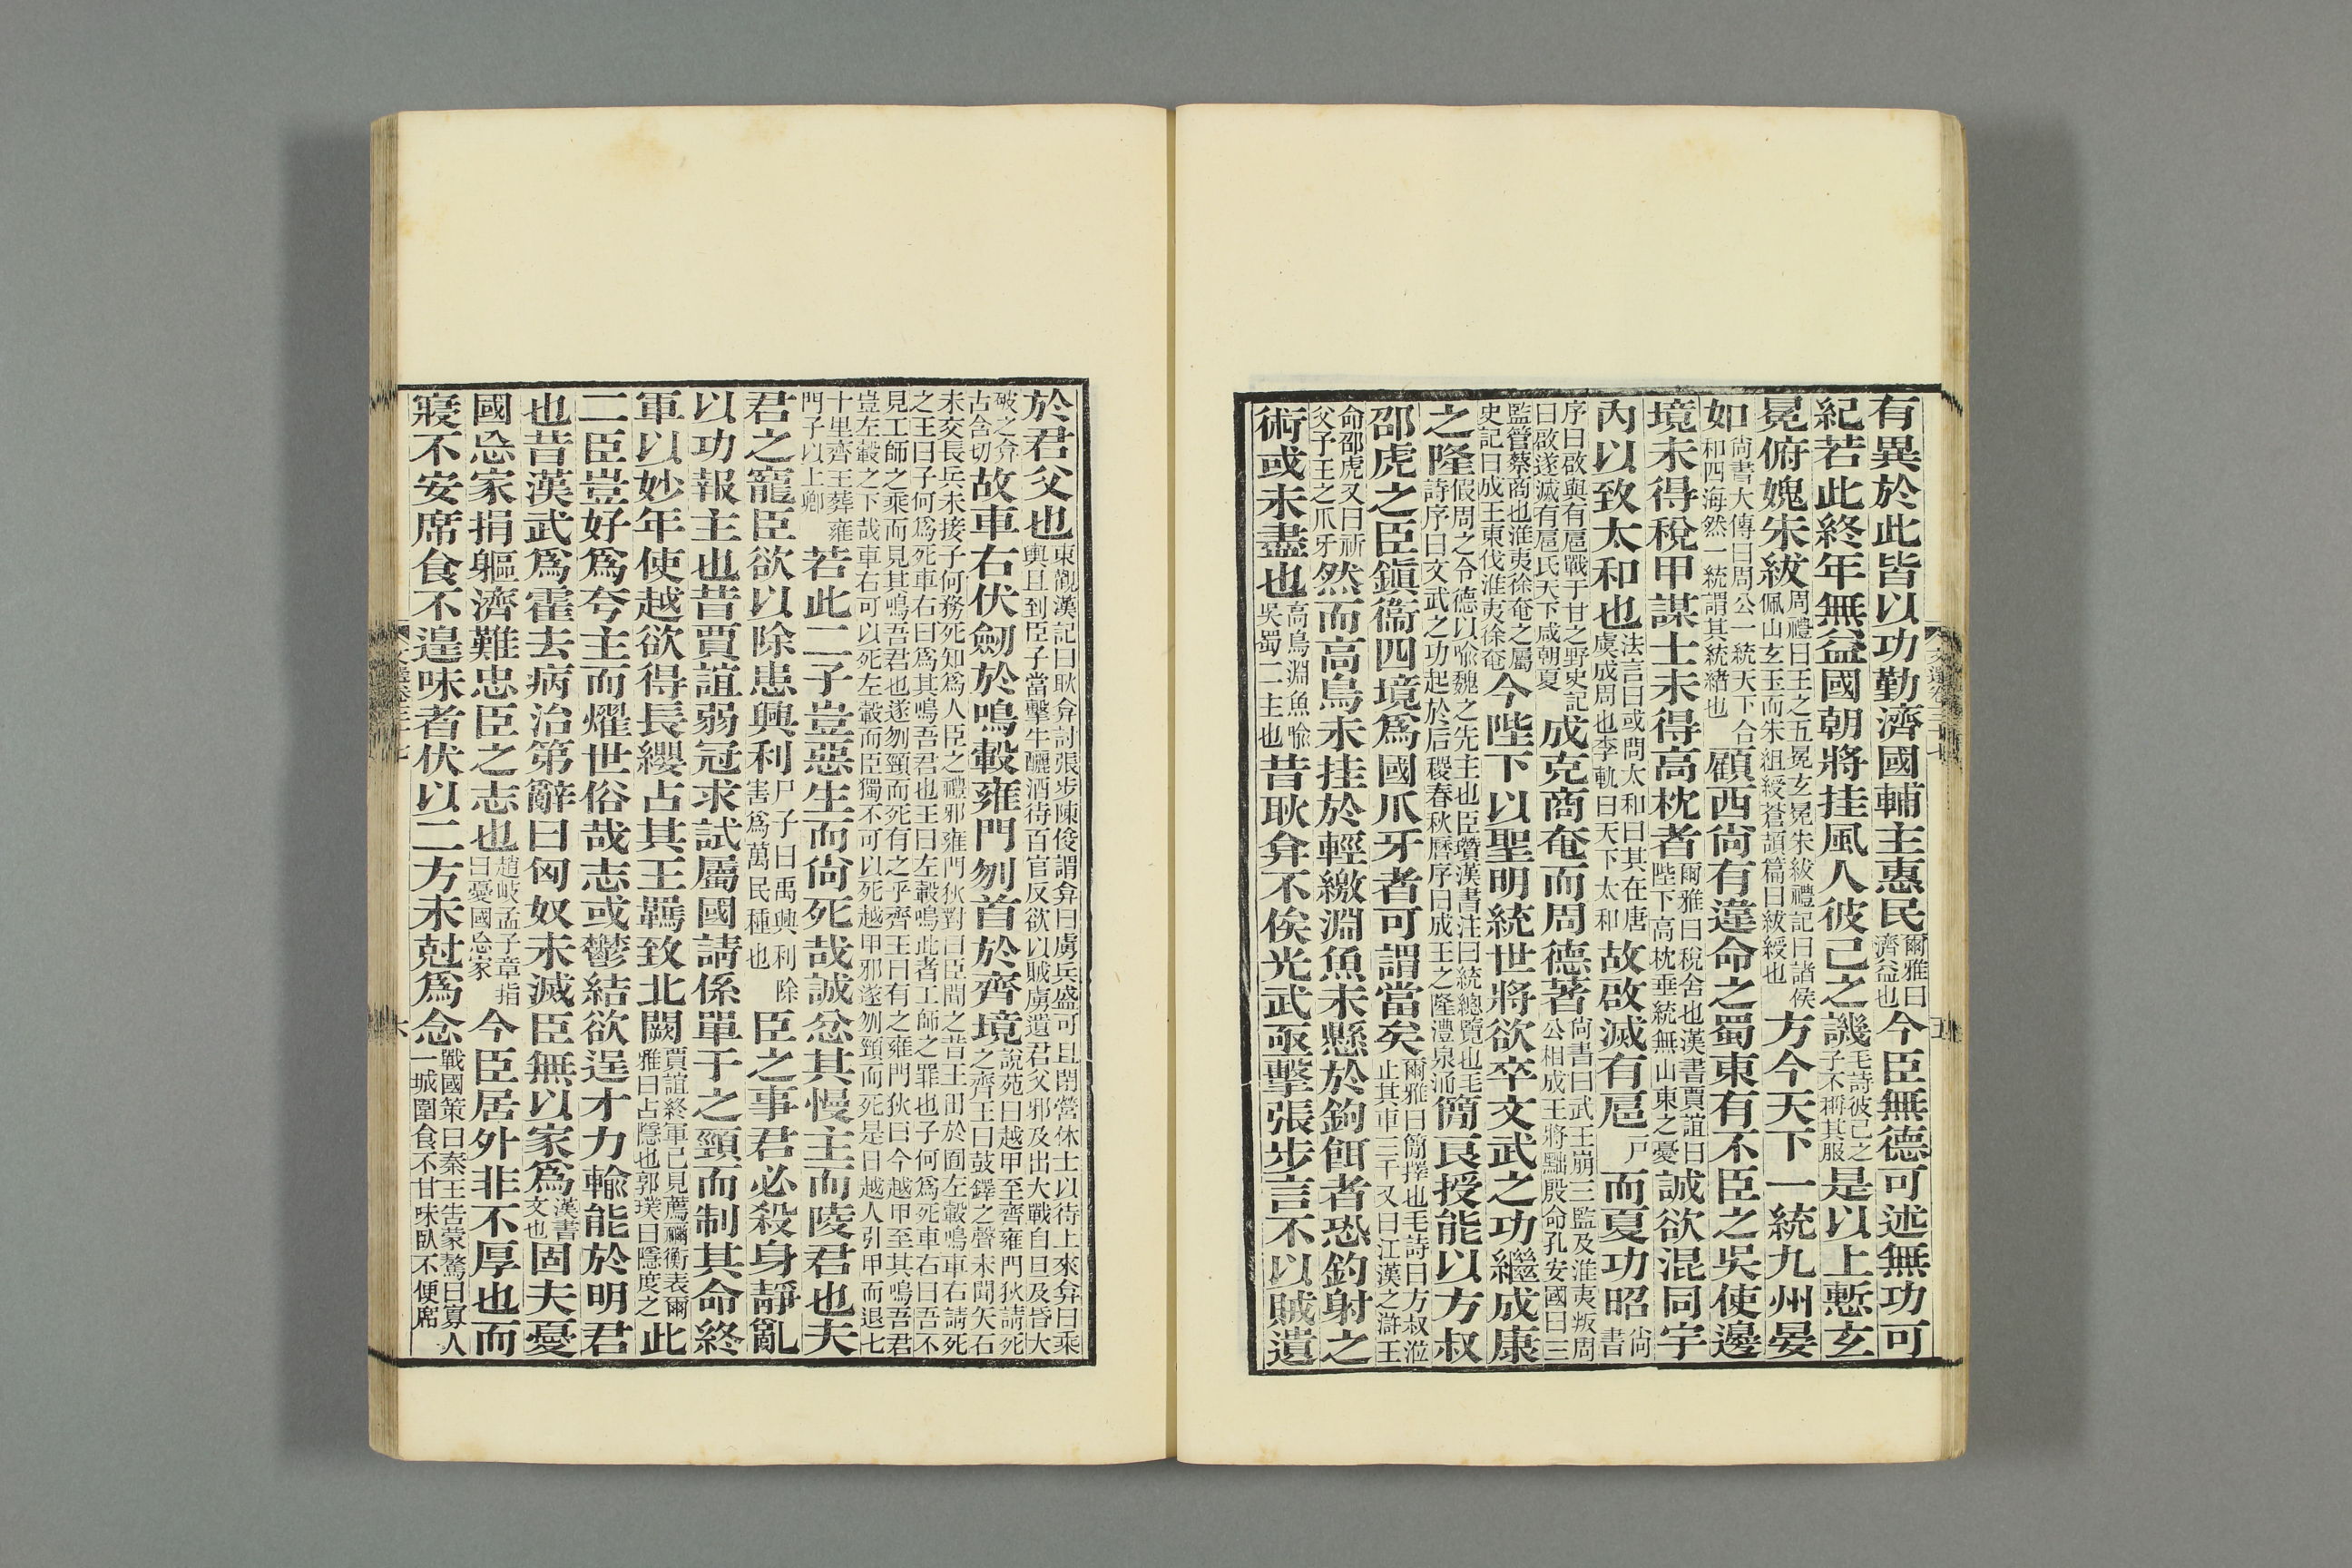 有異於此皆以功勤濟國輔主惠民爾雅曰濟益也今臣無德可述無功可
紀若此終年無益國朝將挂風人彼己之譏毛詩彼己之子不稱其服是以上慙玄
冕俯媿朱紱周禮曰王之五冕玄冕朱紱禮記曰諸侯佩山玄玉而朱組綬蒼頡篇曰紱綬也方今天下一統九州晏
如尚書大傳曰周公一統天下合和四海然一統謂其統緒也顧西尚有違命之蜀東有不臣之吳使邊
境未得稅甲謀士未得高枕者爾雅曰稅舍也漢書賈誼曰陛下高枕垂統無山東之憂誠欲混同宇
內以致太和也法言曰或問太和曰其在唐虞成周也李軌曰天下太和故啟滅有扈戶而夏功昭尚書
序曰啟與有扈戰于甘之野史記曰啟遂滅有扈氏天下咸朝夏成克商奄而周德著尚書曰武王崩三監及淮夷叛周公相成王將黜殷命孔安國曰三
監管蔡商也淮夷徐奄之屬史記曰成王東伐淮夷徐奄今陛下以聖明統世將欲卒文武之功繼成康
之隆假周之令德以喻魏之先主也臣瓚漢書注曰統總覽也毛詩序曰文武之功起於后稷春秋曆序曰成王之隆澧泉涌簡良授能以方叔
邵虎之臣鎭衞四境爲國爪牙者可謂當矣爾雅曰簡擇也毛詩曰方叔涖止其車三千又曰江漢之滸王
命邵虎又曰祈父予王之爪牙然而高鳥未挂於輕繳淵魚未懸於鉤餌者恐釣射之
術或未盡也高鳥淵魚喻吳蜀二主也昔耿弇不俟光武亟擊張步言不以賊遺
於君父也東觀漢記曰耿弇討張步陳俊謂弇曰虜兵盛可且閉營休士以待上來弇曰乘輿且到臣子當擊牛釃酒待百官反欲以賊虜遺君父邪及出大戰自旦及昏大
破之弇古含切故車右伏劒於鳴轂雍門刎首於齊境說苑曰越甲至齊雍門狄請死之齊王曰鼓鐸之聲未聞矢石
未交長兵未接子何務死知爲人臣之禮邪雍門狄對曰臣聞之昔王田於囿左轂鳴車右請死之王曰子何爲死車右曰爲其鳴吾君也王曰左轂鳴此者工師之罪也子何爲死車右曰吾不
見工師之乘而見其鳴吾君也遂刎頸而死有之乎齊王曰有之雍門狄曰今越甲至其鳴吾君豈左轂之下哉車右可以死左轂而臣獨不可以死越甲邪遂刎頸而死是日越人引甲而退七
十里齊王葬雍門子以上卿若此二子豈惡生而尚死哉誠忿其慢主而陵君也夫
君之寵臣欲以除患興利尸子曰禹興利除害爲萬民種也臣之事君必殺身靜亂
以功報主也昔賈誼弱冠求試屬國請係單于之頸而制其命終
軍以妙年使越欲得長纓占其王羈致北闕賈誼終軍已見薦禰衡表爾雅曰占隱也郭璞曰隱度之此
二臣豈好爲夸主而燿世俗哉志或鬱結欲逞才力輸能於明君
也昔漢武爲霍去病治第辭曰匈奴未滅臣無以家爲漢書文也固夫憂
國忘家捐軀濟難忠臣之志也趙岐孟子章指曰憂國忘家今臣居外非不厚也而
寢不安席食不遑味者伏以二方未尅爲念戰國策曰秦王告蒙驁曰寡人一城圍食不甘味臥不便席